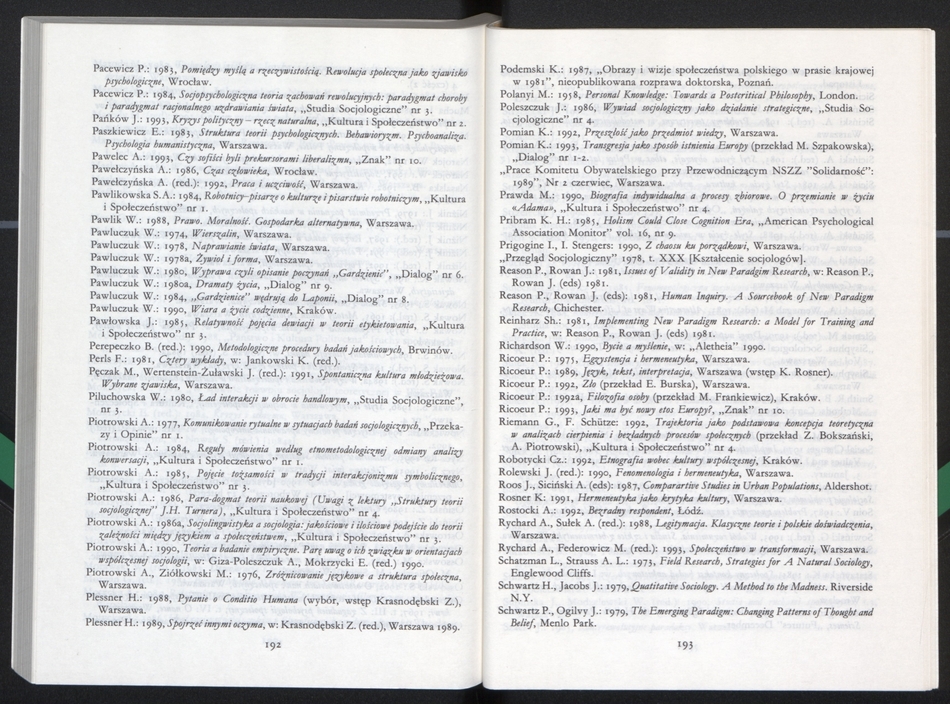 Pacewicz P.: 1983, Pomiędzy myślą a rzeczywistością. Rewolucja społeczna jako zjawisko
psychologiczne, Wrocław.
Pacewicz P.: 1984, Socjopsychologiczna teoria zachowań rewolucyjnych: paradygmat choroby
i paradygmat racjonalnego uzdrawiania świata, „Studia Socjologiczne” nr 3.
Pańków J.: 1993, Kryzys polityczny – rzecz naturalna, „Kultura i Społeczeństwo” nr 2.
Paszkiewicz E.: 1983, Struktura teorii psychologicznych. Behawioryzm. Psychoanaliza.
Psychologia humanistyczna, Warszawa.
Pawelec A.: 1993, Czy sofiści byli prekursorami liberalizmu, „Znak” nr 10.
Pawełczyńska A.: 1986, Czas człowieka, Wrocław.
Pawełczyńska A. (red.): 1992, Praca i uczciwość, Warszawa.
Pawlikowska S.A.: 1984, Robotnicy–pisarze o kulturze i pisarstwie robotniczym, „Kultura
i Społeczeństwo” nr 1.
Pawlik W.: 1988, Prawo. Moralność. Gospodarka alternatywna, Warszawa.
Pawluczuk W.: 1974, Wierszalin, Warszawa.
Pawluczuk W.: 1978, Naprawianie świata, Warszawa.
Pawluczuk W.: 1978a, Żywioł i forma, Warszawa.
Pawluczuk W.: 1980, Wyprawa czyli opisanie poczynań „Gardzienic”, „Dialog” nr 6.
Pawluczuk W.: 1980a, Dramaty życia, „Dialog” nr 9.
Pawluczuk W.: 1984, „Gardzienice” wędrują do Laponii, „Dialog” nr 8.
Pawluczuk W.: 1990, Wiara a życie codzienne, Kraków.
Pawłowska J.: 1985, Relatywność pojęcia dewiacji w teorii etykietowania, „Kultura
i Społeczeństwo” nr 3.
Perepeczko B. (red.): 1990, Metodologiczne procedury badań jakościowych, Brwinów.
Perls F.: 1981, Cztery wykłady, w: Jankowski K. (red.).
Pęczak M., Wertenstein-Żuławski J. (red.): 1991, Spontaniczna kultura młodzieżowa.
Wybrane zjawiska, Warszawa.
Piluchowska W.: 1980, Ład interakcji w obrocie handlowym, „Studia Socjologiczne”,
nr 3.
Piotrowski A.: 1977, Komunikowanie rytualne w sytuacjach badań socjologicznych, „Przeka-
zy i Opinie” nr 1.
Piotrowski A.: 1984, Reguły mówienia według etnometodologicznej odmiany analizy
konwersacji, „Kultura i Społeczeństwo” nr 1.
Piotrowski A.: 1985, Pojęcie tożsamości w tradycji interakcjonizmu symbolicznego,
„Kultura i Społeczeństwo” nr 3.
Piotrowski A.: 1986, Para-dogmat teorii naukowej (Uwagi z lektury „Struktury teorii
socjologicznej” J.H. Turnera), „Kultura i Społeczeństwo” nr 4.
Piotrowski A.: 1986a, Socjolingwistyka a socjologia: jakościowe i ilościowe podejście do teorii
zależności między językiem a społeczeństwem, „Kultura i Społeczeństwo” nr 3.
Piotrowski A.: 1990, Teoria a badanie empiryczne. Parę uwag o ich związku w orientacjach
współczesnej socjologii, w: Giza-Poleszczuk A., Mokrzycki E. (red.) 1990.
Piotrowski A., Ziółkowski M.: 1976, Zróżnicowanie językowe a struktura społeczna,
Warszawa.
Plessner H.: 1988, Pytanie o Conditio Humana (wybór, wstęp Krasnodębski Z.),
Warszawa.
Plessner H.: 1989, Spojrzeć innymi oczyma, w: Krasnodębski Z. (red.), Warszawa 1989.
192
Podemski K.: 1987, „Obrazy i wizje społeczeństwa polskiego w prasie krajowej
w 1981”, nieopublikowana rozprawa doktorska, Poznań.
Polanyi M.: 1958, Personal Knowledge: Towards a Postcritical Philosophy, London.
Poleszczuk J.: 1986, Wywiad socjologiczny jako działanie strategiczne, „Studia So-
cjologiczne” nr 4.
Pomian K.: 1992, Przeszłość jako przedmiot wiedzy, Warszawa.
Pomian K.: 1993, Transgresja jako sposób istnienia Europy (przekład M. Szpakowska),
„Dialog” nr 1-2.
„Prace Komitetu Obywatelskiego przy Przewodniczącym NSZZ ”Solidarność”:
1989”, Nr 2 czerwiec, Warszawa.
Prawda M.: 1990, Biografia indywidualna a procesy zbiorowe. O przemianie w życiu
«Adama», „Kultura i Społeczeństwo” nr 4.
Pribram K. H.: 1985, Holism Could Close Cognition Era, „American Psychological
Association Monitor” vol. 16, nr 9.
Prigogine I., I. Stengers: 1990, Z chaosu ku porządkowi, Warszawa.
„Przegląd Socjologiczny” 1978, t. XXX [Kształcenie socjologów].
Reason P., Rowan J.: 1981, Issues of Validity in New Paradgim Research, w: Reason P.,
Rowan J. (eds) 1981.
Reason P., Rowan J. (eds): 1981, Human Inquiry. A Sourcebook of New Paradigm
Research, Chichester.
Reinharz Sh.: 1981, Implementing New Paradigm Research: a Model for Training and
Practice, w: Reason P., Rowan J. (eds) 1981.
Richardson W.: 1990, Bycie a myślenie, w: „Aletheia” 1990.
Ricoeur P.: 1975, Egzystencja i hermeneutyka, Warszawa.
Ricoeur P.: 1989, Język, tekst, interpretacja, Warszawa (wstęp K. Rosner).
Ricoeur P.: 1992, Zło (przekład E. Burska), Warszawa.
Ricoeur P.: 1992a, Filozofia osoby (przekład M. Frankiewicz), Kraków.
Ricoeur P.: 1993, Jaki ma być nowy etos Europy?, „Znak” nr 10.
Riemann G., F. Schütze: 1992, Trajektoria jako podstawowa koncepcja teoretyczna
w analizach cierpienia i bezładnych procesów społecznych (przekład Z. Bokszański,
A. Piotrowski), „Kultura i Społeczeństwo” nr 4.
Robotycki Cz.: 1992, Etnografia wobec kultury współczesnej, Kraków.
Rolewski J. (red.): 1990, Fenomenologia i hermeneutyka, Warszawa.
Roos J., Siciński A. (eds): 1987, Comparartive Studies in Urban Populations, Aldershot.
Rosner K: 1991, Hermeneutyka jako krytyka kultury, Warszawa.
Rostocki A.: 1992, Bezradny respondent, Łódź.
Rychard A., Sułek A. (red.): 1988, Legitymacja. Klasyczne teorie i polskie doświadczenia,
Warszawa.
Rychard A., Federowicz M. (red.): 1993, Społeczeństwo w transformacji, Warszawa.
Schatzman L., Strauss A. L.: 1973, Field Research, Strategies for A Natural Sociology,
Englewood Cliffs.
Schwartz H., Jacobs J.: 1979, Quatitative Sociology. A Method to the Madness. Riverside
N.Y.
Schwartz P., Ogilvy J.: 1979, The Emerging Paradigm: Changing Patterns of Thought and
Belief, Menlo Park.
193